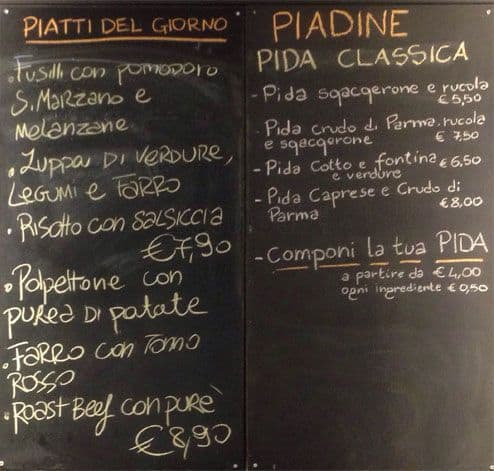 PIATTI DEL GIORNO
• Fusilli con pomodoro
S. Marzano e
Melanzane
• Zuppa DI VERDURE,
LEGUMI e FARRO
• Risotto con SALSICCIA
€7,90
• Polpettone con
purea DI patate
• FARRO con Tonno
ROSSO
• Roast Beef con purè
€8,90
PIADINE
PIDA CLASSICA
- Pida sqacqerone e rucola
€ 5,50
- Pida crudo di Parma, rucola
e sqacqerone € 7,50
- Pida Cotto e fontina € 6,50
e verdure
- Pida Caprese e Crudo di
Parma € 8,00
- Componi la tua PIDA
a partire da € 4,00
ogni ingrediente € 0,50